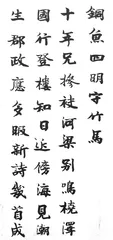 銅魚四明守竹馬
十年兄摻袪河梁別鳴橈澤
國行登樓知日近傍海見潮
生郡政應多暇新詩幾首成